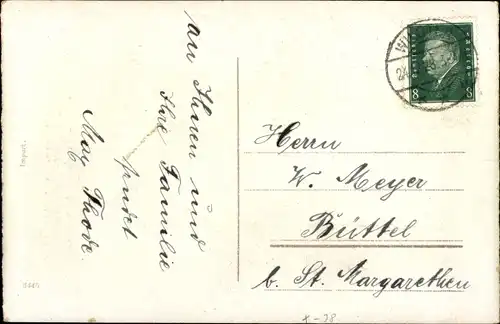 an Ihnen und
Ihre Familie
sendet
Max Thode.
Import.
Deutsches Reich
8 8
Herrn
W. Meyer
Büttel
b. St. Margarethen
x-28